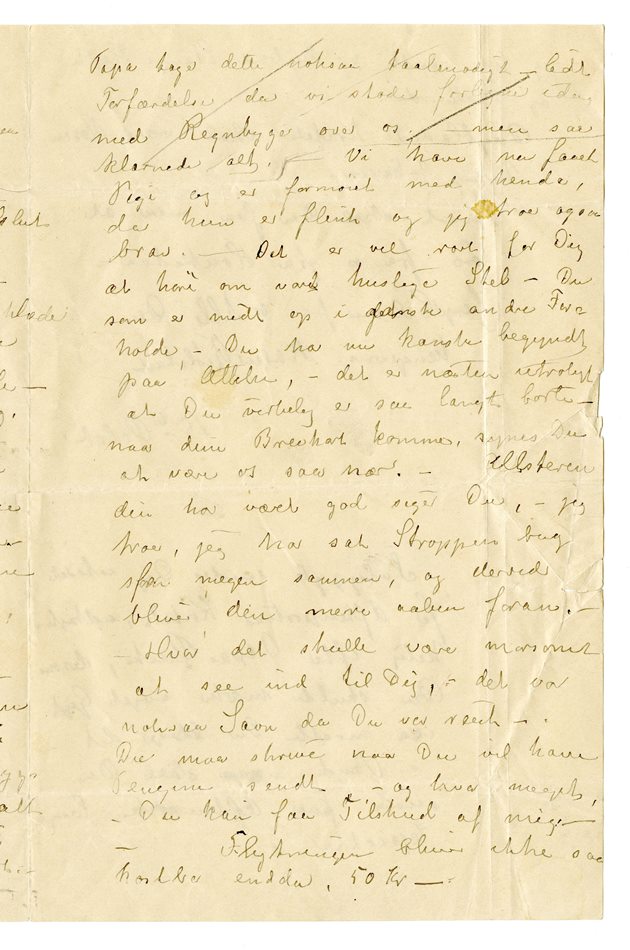 Papa tage dette noksaa taalmodigt – lidt
Forfærdelse da vi stode idag
med Regnbyger over os. – men saa
klarnede alt. – Vi have nu faaet
Pige og er fornøiet med hende,
da hun er flink og jeg troe ogsaa
brav. – Det er vel rart for Dig
at høre om vort huslige Stel – Du
som er midt op i ganske andre For=
holde, – Du ha nu kanske begyndt
paa Atelier, – det er næsten utroligt
at Du virkelig er saa langt borte –
naa dine Brevkort komme, synes Du
at være os saa nær. –
din ha været god siger Du, – jeg
troe, jeg har sat Stroppen bag
for megen sammen, og derved
bliver den mere aaben foran. –
– Hvor det skulle være morsomt
at see ind til Dig, – det var
noksaa Savn da Du var reist – .
Du maa skrive naa Du vil have
Pengene sendt – og hvor meget,
– Du kan faa Tilskud af mig –
– Flytningen bliver ikke saa
kostba endda, 50 Kr –